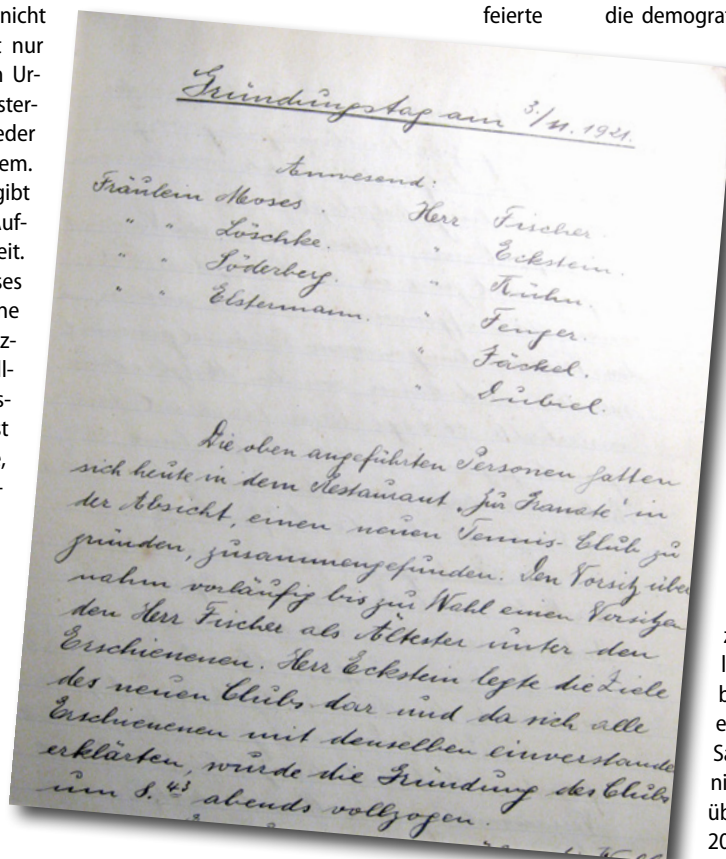 nicht
nur
n Ur-
ster-
eder
em.
gibt
Auf-
eit.
ses
ne
z-
ll-
s-
st
feierte die demograf
Gründungstag am 3./11. 1921.
Anwesend:
Fräulein Moses Herr Fischer.
" " Löschke. " Eckstein.
" " Söderberg. " Kühn.
" " Elstermann. " Fenger.
" Jäckel.
" Dubiel.
Die oben angeführten Personen hatten
sich heute in dem Restaurant „Zur Granate" in
der Absicht, einen neuen Tennis-Club zu
gründen, zusammengefunden. Den Vorsitz über
nahm vorläufig bis zur Wahl einen Vorsitzen
den Herr Fischer als Ältester unter den
Erschienenen. Herr Eckstein legte die Ziele
des neuen Clubs dar und da sich alle
Erschienenen mit denselben einverstande
erklärten, wurde die Gründung des Clubs
um 8.43 abends vollzogen.
z
b
e
Sa
ni
üb
20